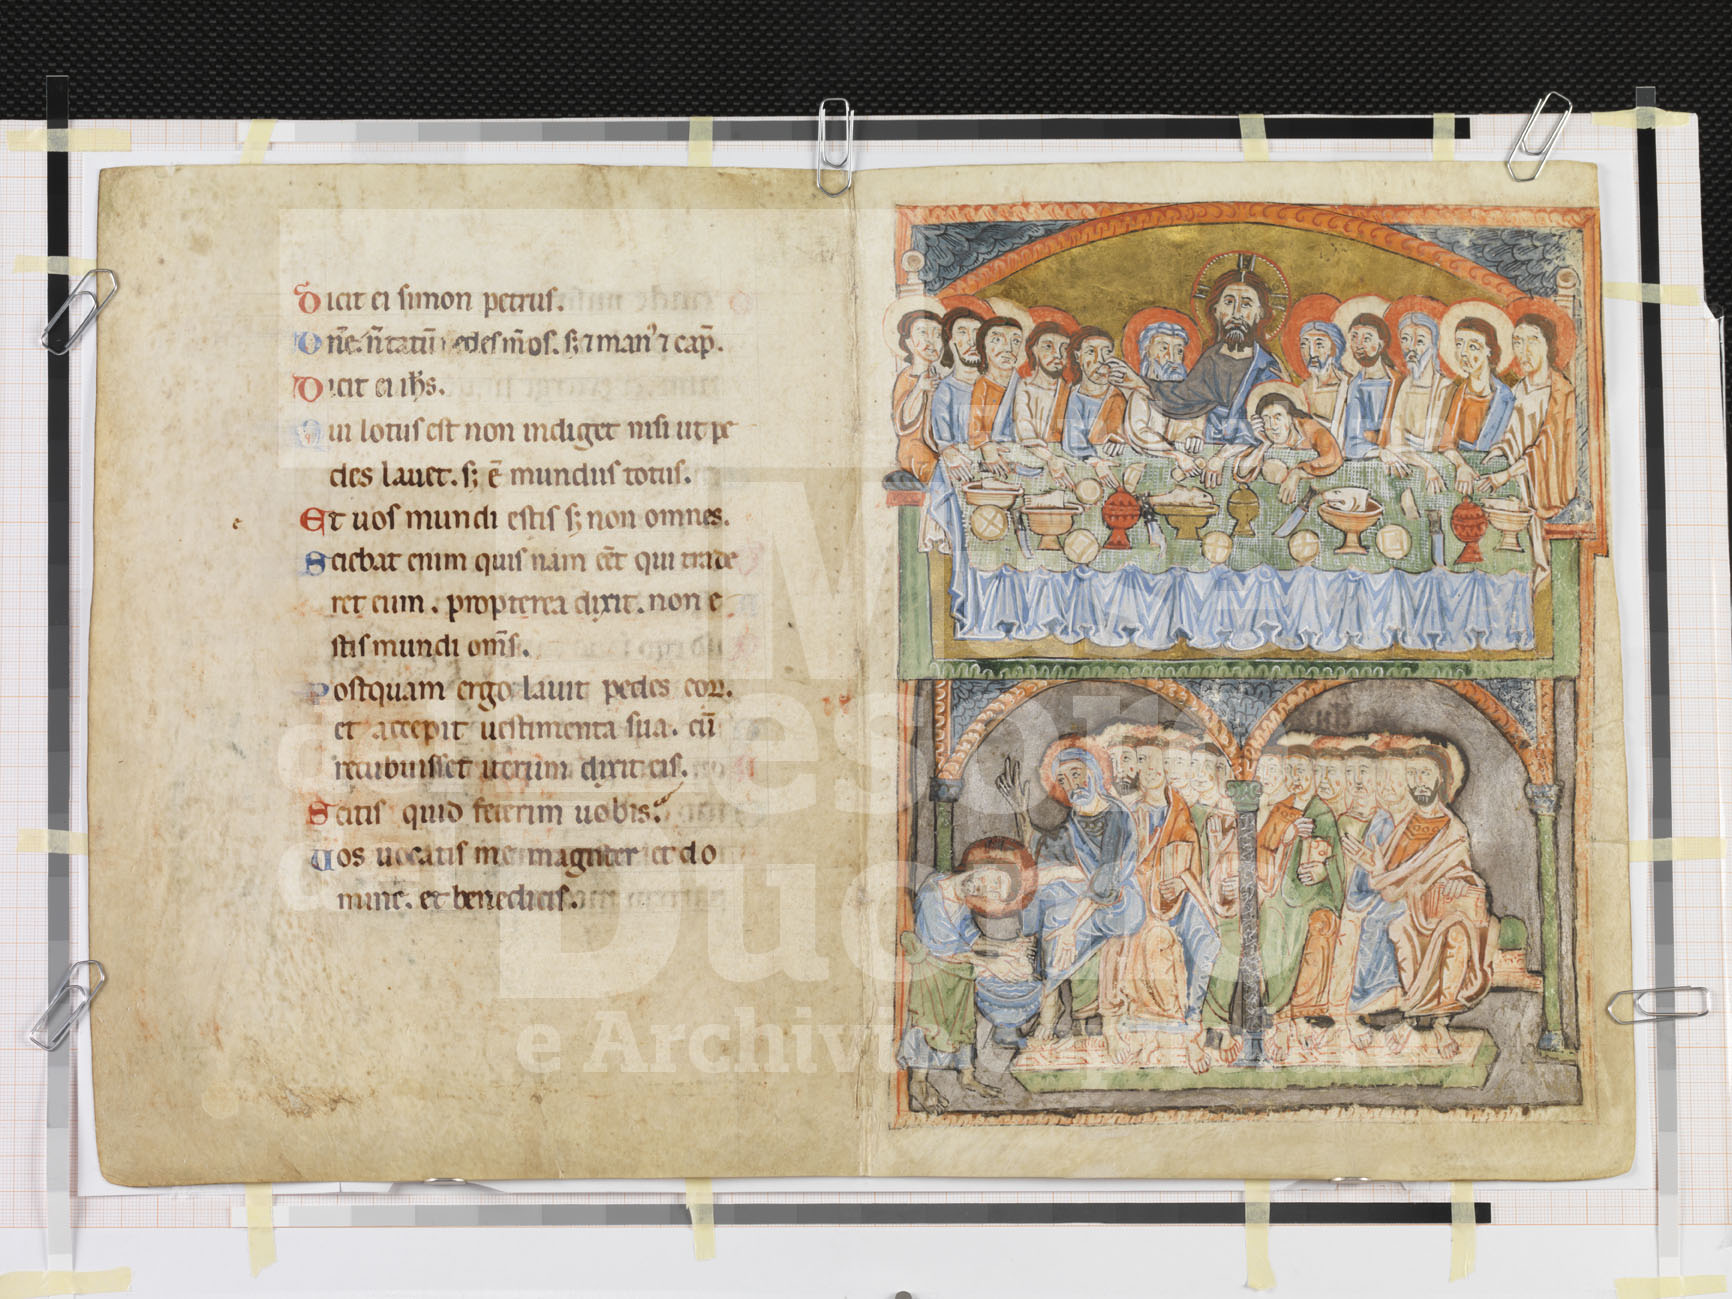 Dicit ei simon petrus.
Dn̄e. ñ tatū pedes m̄os. sꝫ ⁊ man' ⁊ cap̄.
Dicit ei ih̄s.
Qui lotus est non indiget nisi ut pe
des lauet. sꝫ ē mundus totus.
Et uos mundi estis sꝫ non omnes.
Sciebat enim quis nam eēt qui trade
ret eum. propterea dixit. non e
stis mundi om̄s.
Postquam ergo lauit pedes eoꝝ.
et accepit uestimenta sua. cū
recubuisset iterum dixit eis.
Scitis quid fecerim uobis.
Uos uocatis me magister et do
mine. et benedicitis.
Museo
del Tesoro
del Duomo
e Archivio